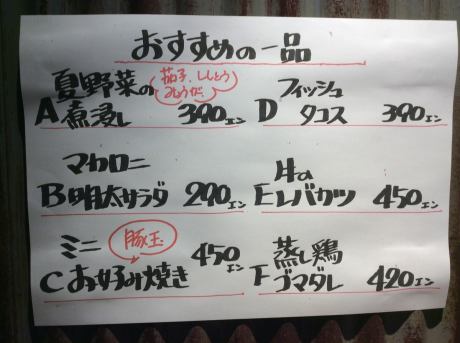 おすすめの一品
夏野菜の
茄子、ししとう
A 煮浸し 390エン
マカロニ
B 明太サラダ 290エン
ミニ 豚玉 450エン
C お好み焼き
フィッシュ
D タコス 390エン
E レバカツ 450エン
蒸し鶏
F ゴマダレ 420エン